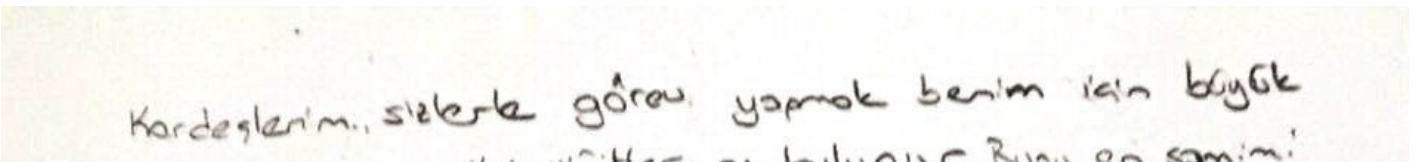 Kardeşlerim, sizlerle görev yapmak benim için büyük
Bunu en samimi